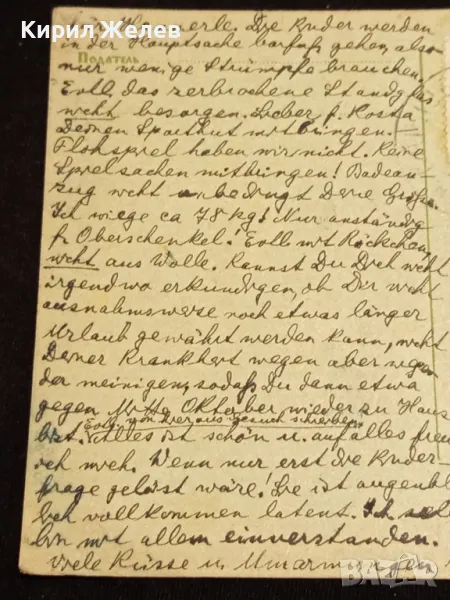 Кирил Желев
Податель
Die Kinder werden
in der Hauptsache barfuß gehen, also
nur wenige Strümpfe brauchen.
Evtl. das zerbrochene Standglas
nicht besorgen. Lieber f. Kosta
Deinen Sporthut mitbringen. –
Flohspiel haben wir nicht. Keine
Spielsachen mitbringen! Badean-
zug nicht unbedingt Deine Größe.
Ich wiege ca 78 kg! Nur anständig
f. Oberschenkel! Evtl. mit Röckchen,
nicht aus Wolle. Kannst Du Dich nicht
irgendwo erkundigen, ob Dir nicht
ausnahmsweise noch etwas länger
Urlaub gewährt werden kann, nicht
Deiner Krankheit wegen aber wegen
der meinigen, sodaß Du dann etwa
gegen Mitte Oktober wieder zu Haus
Evtl. von hier aus Gesuch schreiben
bist. Alles ist schön u. auf alles freu
ich mich. Wenn nur erst die Kinder-
frage gelöst wäre! Sie ist augenbl
lich vollkommen latent. Ich
bin mit allem einverstanden.
Viele Küsse u. Umarmungen
BAZAR